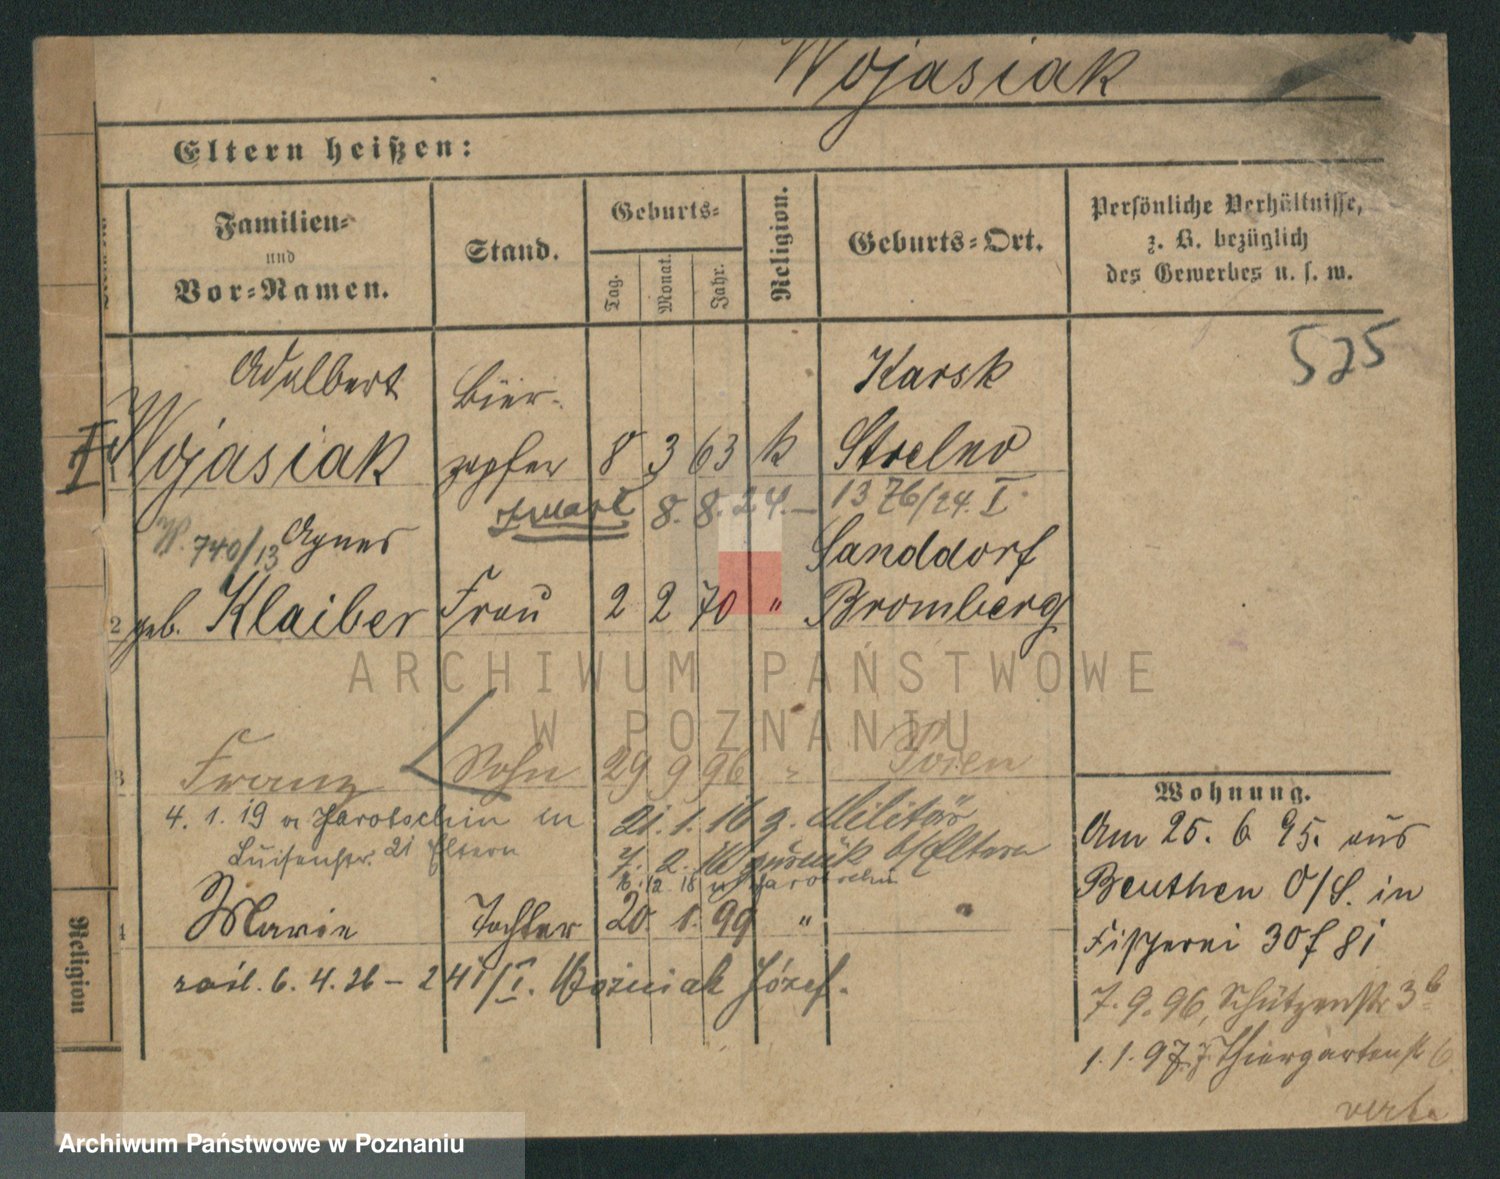 Wojasiak
Eltern heißen:
Familien-
und
Vor-Namen.
Stand.
Geburts-
Tag.
Monat.
Jahr.
Religion.
Geburts-Ort.
Persönliche Verhältnisse,
z. B. bezüglich
des Gewerbes u. s. w.
525
Adalbert
Bier-
Karsk
Wojasiak
zapfer
8 3 63 k
Strelno
zmarł 8. 8. 24. – 1376/24. I.
740/13
Agnes
Sanddorf
2
geb. Klaiber
Frau
2 2 70 "
Bromberg
ARCHIWUM PAŃSTWOWE
W POZNANIU
3
Franz
Sohn
29 9 96 "
Posen
4. 1. 19 v Jarotschin
21. 1. 16 z. Militär
Luisenstr. 21 Eltern
7. 2. 16 zurück b/Eltern
16. 12. 18 n Jarotschin
4
Marie
Tochter
20. 1. 99 "
6. 4. 26 – 241/I. Woźniak Józef.
Wohnung.
Am 25. 6 95. aus
Beuthen O/S. in
Fischerei 30 f 81
7. 9. 96, Schützenstr 3b
1. 1. 97. Thiergartenstr 6
Religion
Archiwum Państwowe w Poznaniu